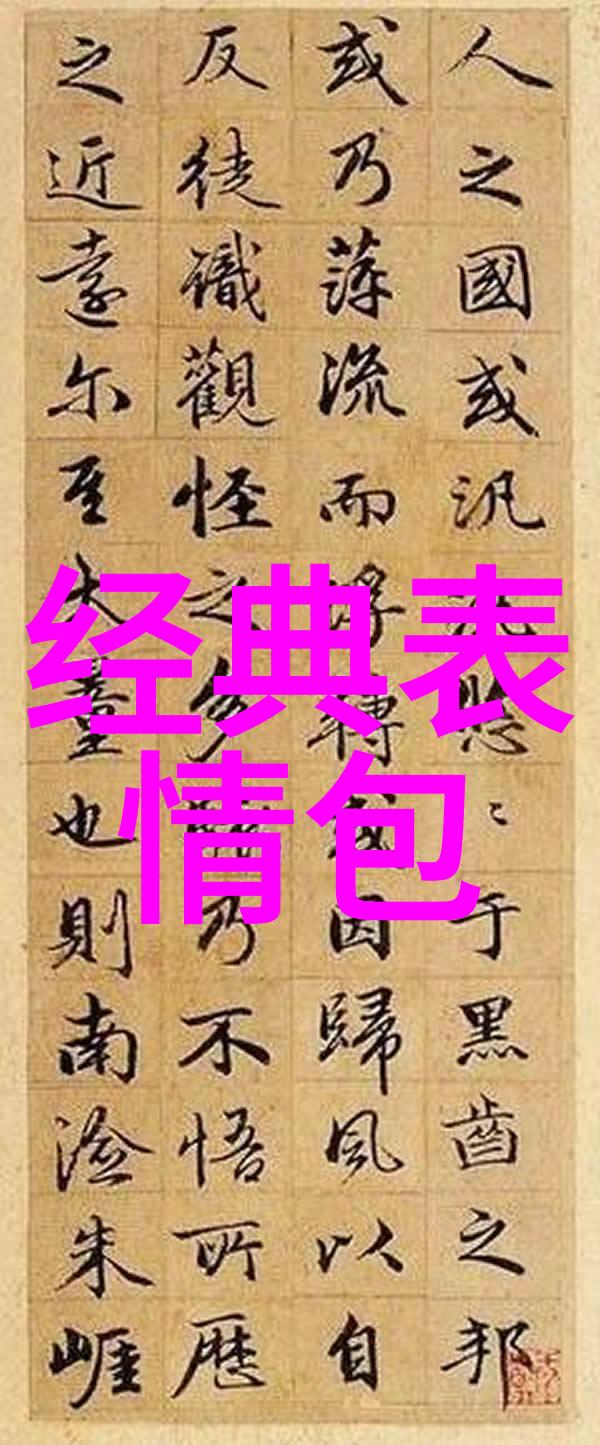 人之國或汎汎悠〻于黑齒之邦
或乃萍流而浮轉或因歸風以自
反徒識觀怪之多駭乃不悟所歷
之近遠尔至大量也則南澰朱崖
经典表
情包